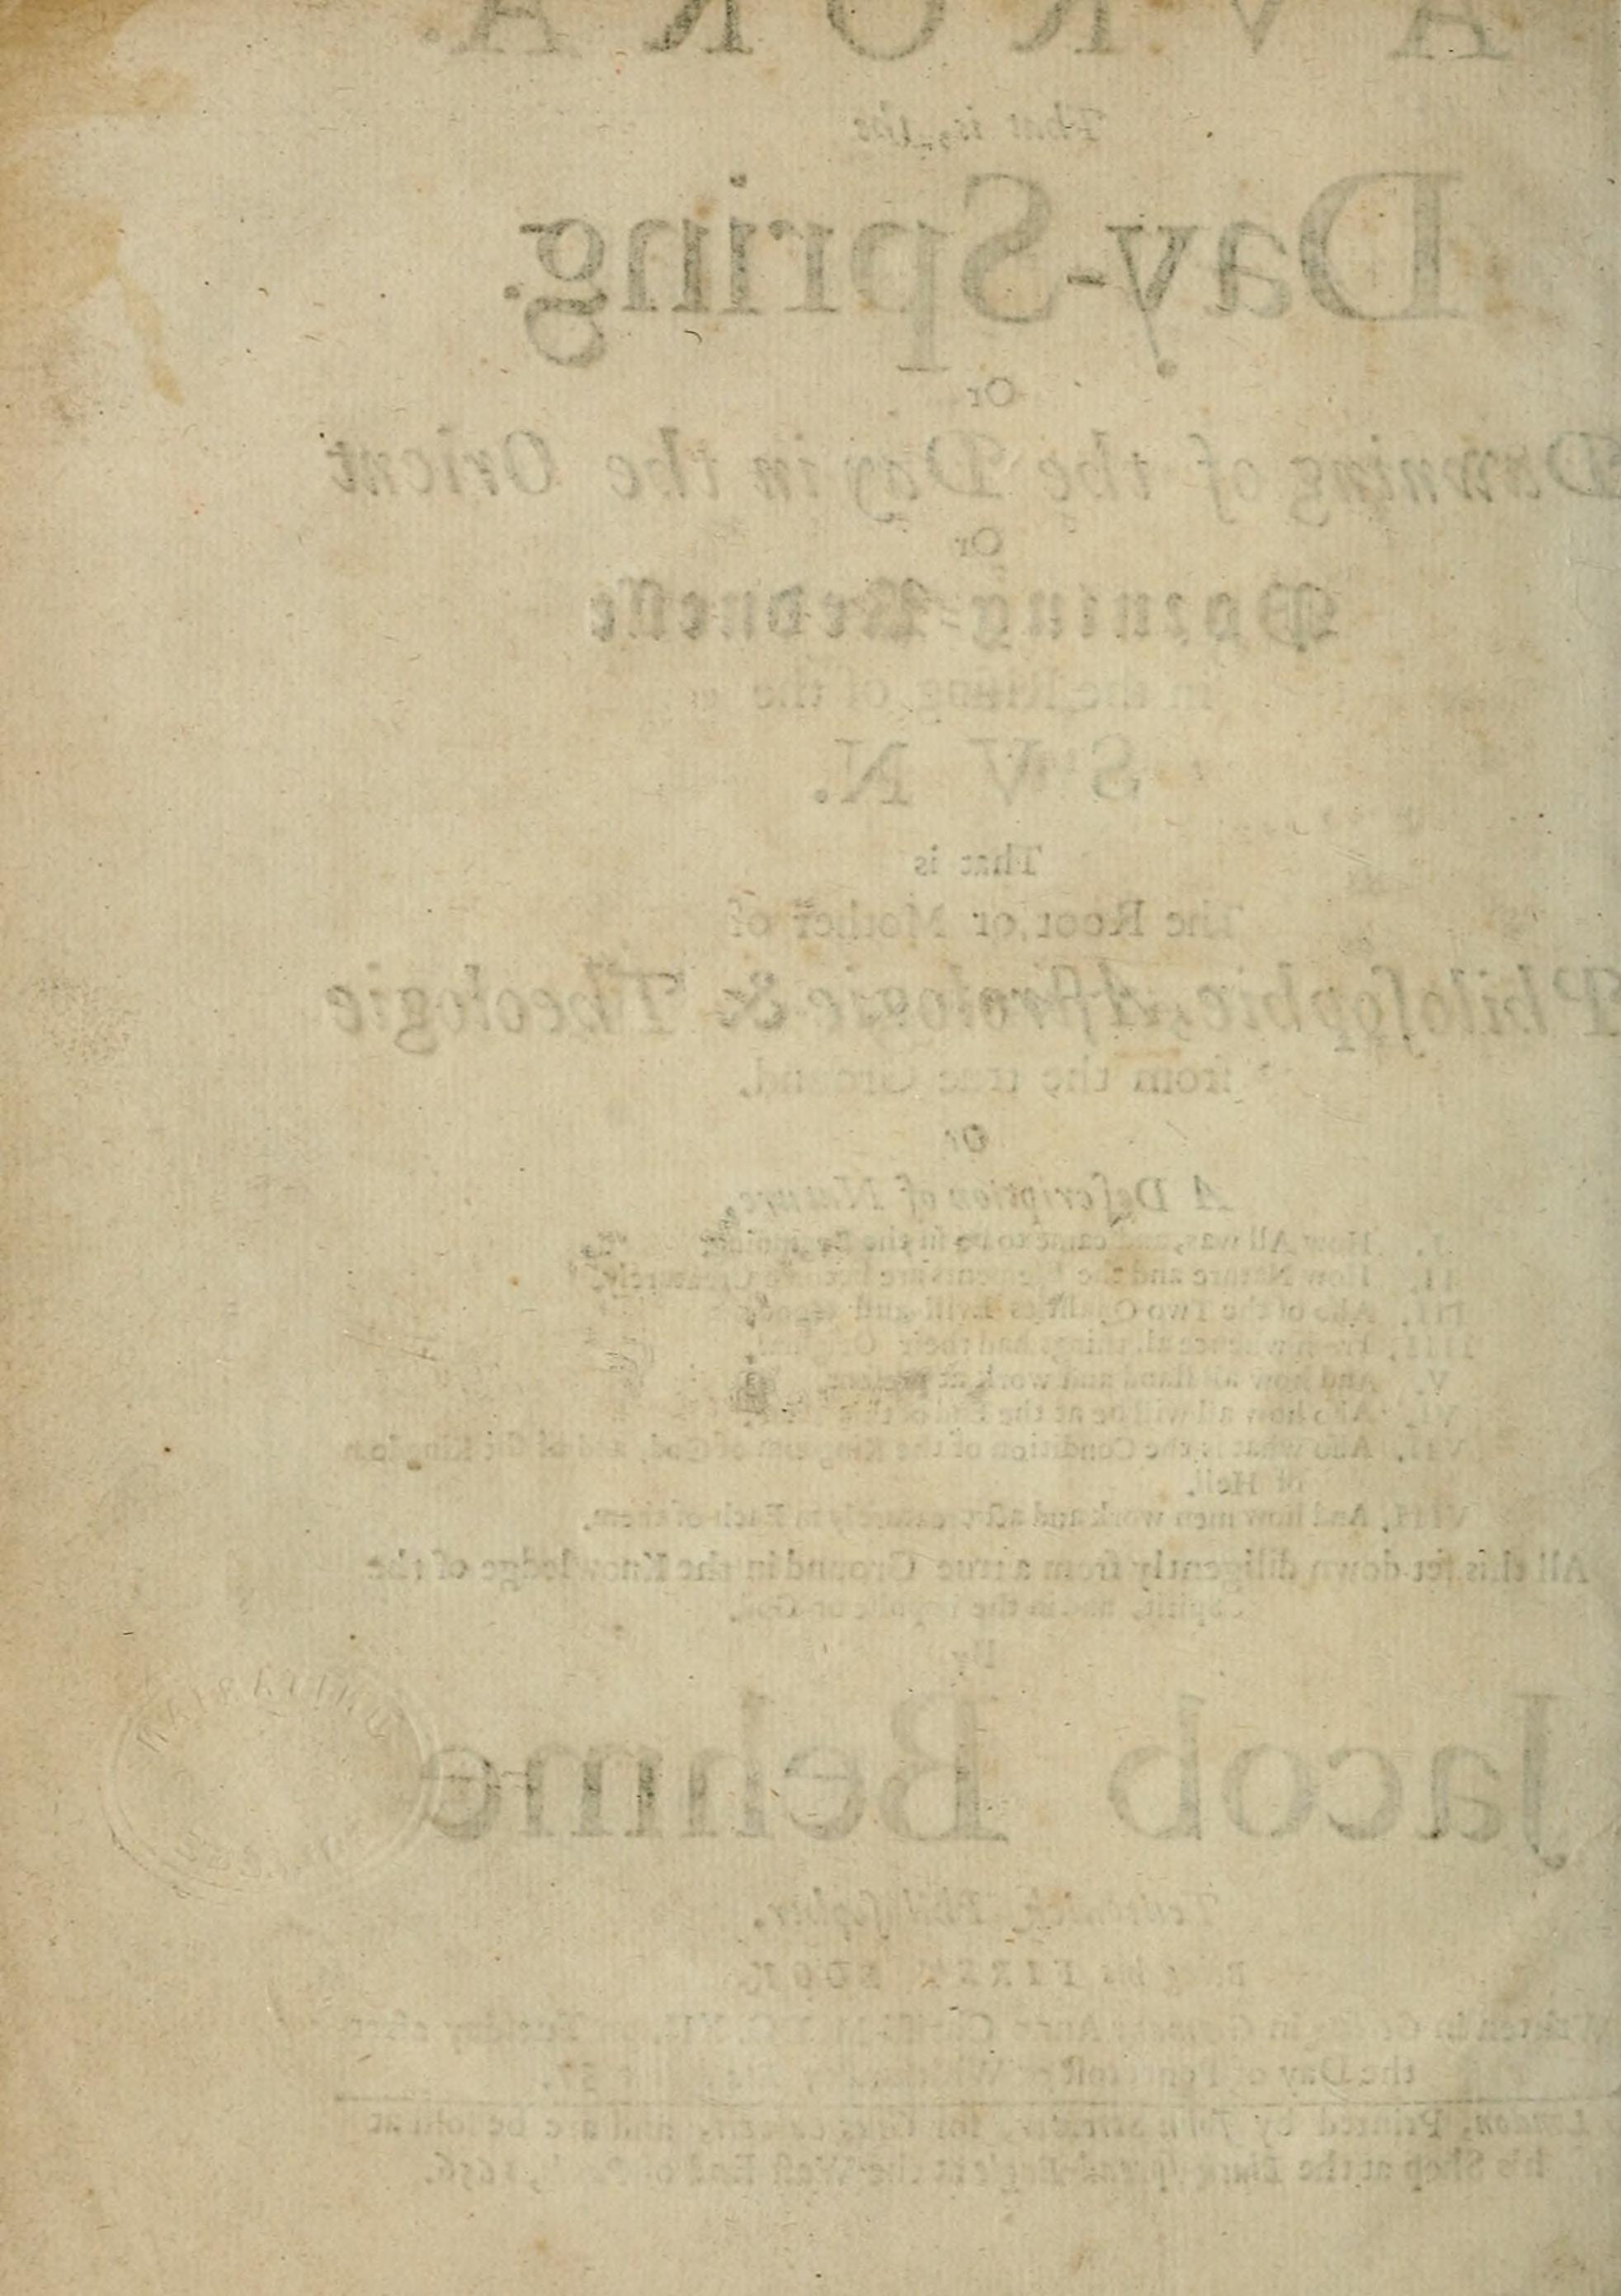 AVRORA.
That is, the
Day-Spring.
Or
Dawning of the Day in the Orient
Or
Morning-Rednesse
in the Rising of the
SVN.
That is
The Root or Mother of
Philosophie, Astrologie & Theologie
from the true Ground.
Or
A Description of Nature,
I. How All was, and came to be in the Beginning.
II. How Nature and the Elements are become Creaturely.
III. Also of the Two Qualities Evill and Good.
IIII. From whence all things had their Original.
V. And how all stand and work at present.
VI. Also how all will be at the End of this Time.
VII. Also what is the Condition of the Kingdom of God, and of the Kingdom
of Hell.
VIII. And how men work and act creaturely in Each of them.
All this set down diligently from a true Ground in the Knowledge of the
Spirit, and in the impulse of God,
By
Jacob Behme
Teutonick Philosopher.
Being his FIRST BOOK.
Written in Gerlitz in Germany Anno Christi M.DC.XII. on Tuesday after
the Day of Pentecost or Whitsunday
London, Printed by John Streater, for Giles Calvert, and are be sold at
his Shop at the Black-spread-Eagle at the West End of 1656.
UNITARIAN